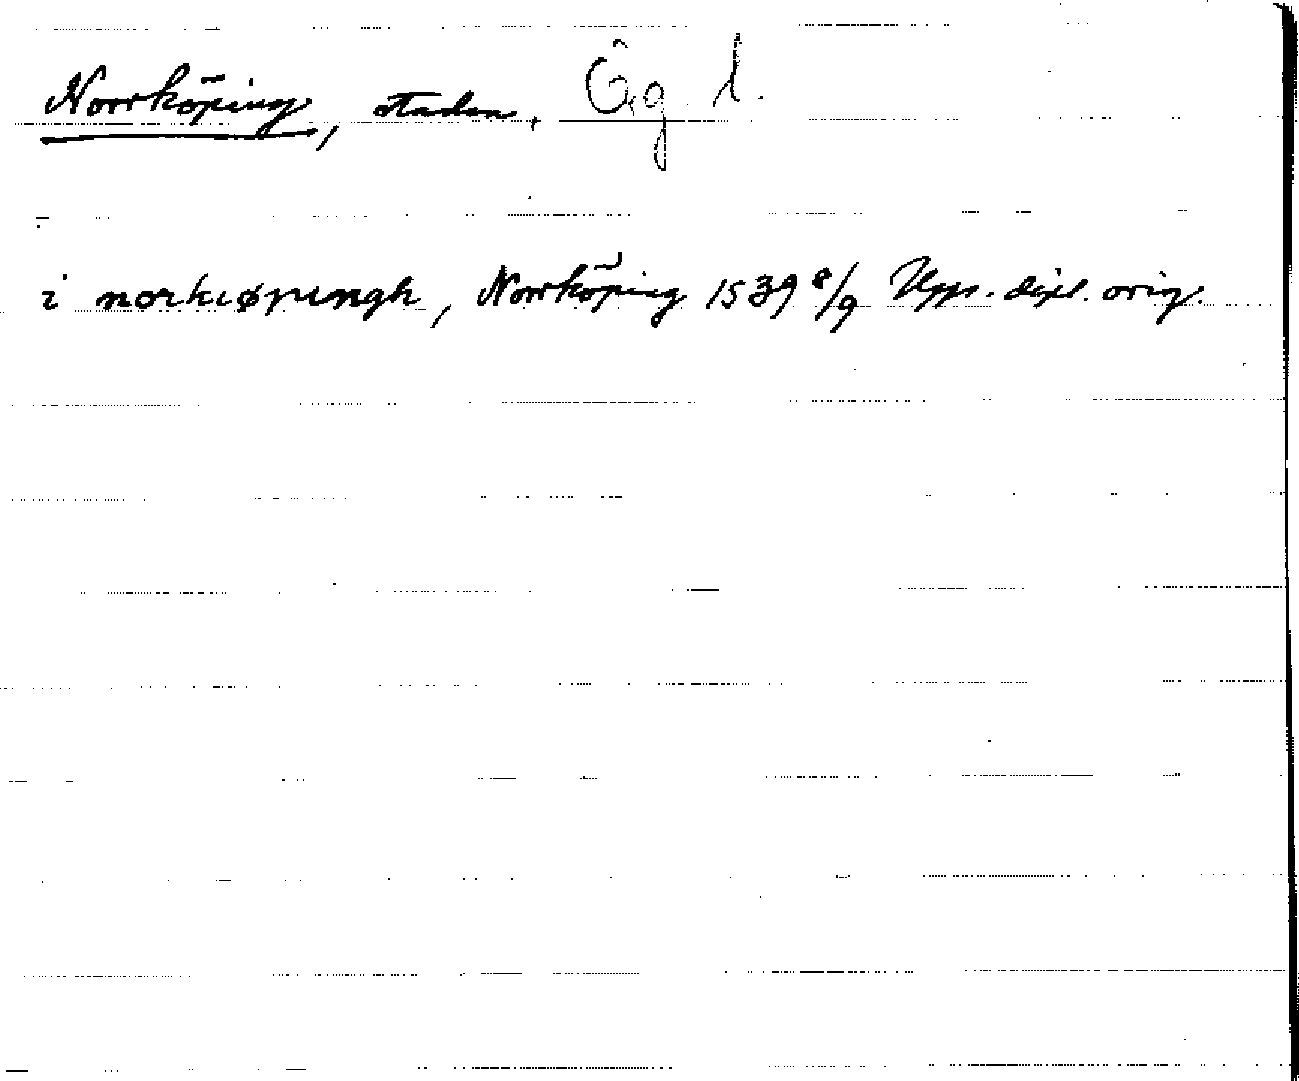 Norrköping, staden. Ög l.
i norkiøpingh, Norrköping 1539 8/9 Upps. dipl. orig.